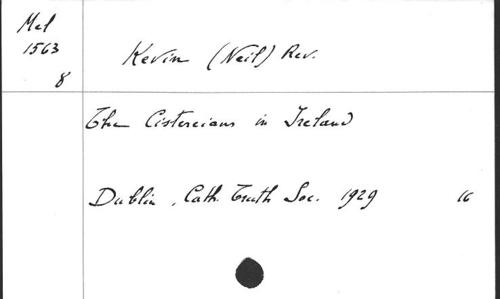 Mel
1563
8
Kevin (Neil) Rev.
The Cistercians in Ireland
Dublin, Cath. Truth Soc. 1929 16